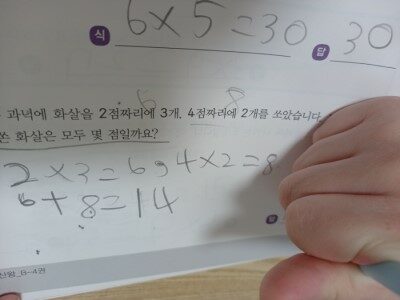 식 6×5=30 답 30
6 8
과녁에 화살을 2점짜리에 3개, 4점짜리에 2개를 쏘았습니다.
쏜 화살은 모두 몇 점일까요?
2×3=6, 4×2=8
6+8=14
B_4권